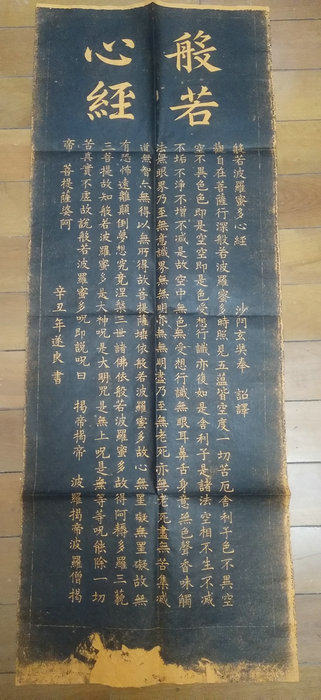 般若
心經
般若波羅蜜多心經
沙門玄奘奉 詔譯
觀自在菩薩行深般若波羅蜜多時照見五蘊皆空度一切苦厄舍利子色不異空
空不異色色即是空空即是色受想行識亦復如是舍利子是諸法空相不生不滅
不垢不淨不增不減是故空中無色無受想行識無眼耳鼻舌身意無色聲香味觸
法無眼界乃至無意識界無無明亦無無明盡乃至無老死亦無老死盡無苦集滅
道無智亦無得以無所得故菩提薩埵依般若波羅蜜多故心無罣礙無罣礙故無
有恐怖遠離顛倒夢想究竟涅槃三世諸佛依般若波羅蜜多故得阿耨多羅三藐
三菩提故知般若波羅蜜多是大神呪是大明咒是無上呪是無等等呪能除一切
苦真實不虛故說般若波羅蜜多呪即說呪曰 揭帝揭帝 波羅揭帝波羅僧揭
帝 菩提薩婆阿
辛丑年遂良書